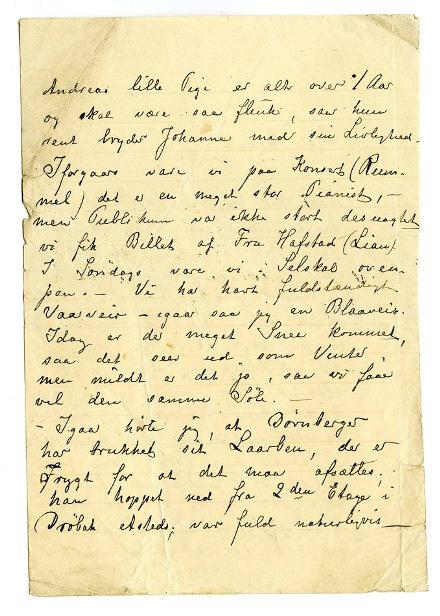 Andreas lille Pige er alt over 1 Aar
og skal være saa flink, saa hun
rent bryder Johanne med sin Livlighed.
Iforgaars vare vi paa Konsert (Rum-
mel) det er en meget stor Pianist, –
men Publikum var ikke stort desuagtet
vi fik Billet af Fru Hafstad (Lian)
I Søndags vare vi i Selskab oven-
paa. – Vi ha havt fuldstændigt
Vaarveir – igaar saa jeg en Blaaveis.
Idag er der meget Snee kommet,
saa det seer ud som Vinter,
men mildt er det jo, saa vi faar
vel den samme Søle. –
– Igaar hørte jeg, at Dørnberger
har brukket sit Laarben, der er
Frygt for at det maa afsættes;
han hoppet ned fra 2den Etage i
Drøbak etsteds; var fuld naturligvis –